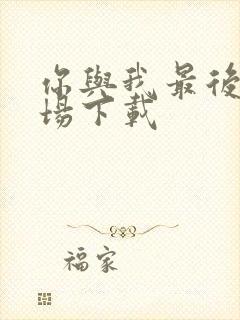 你與我最後
場下載
福家